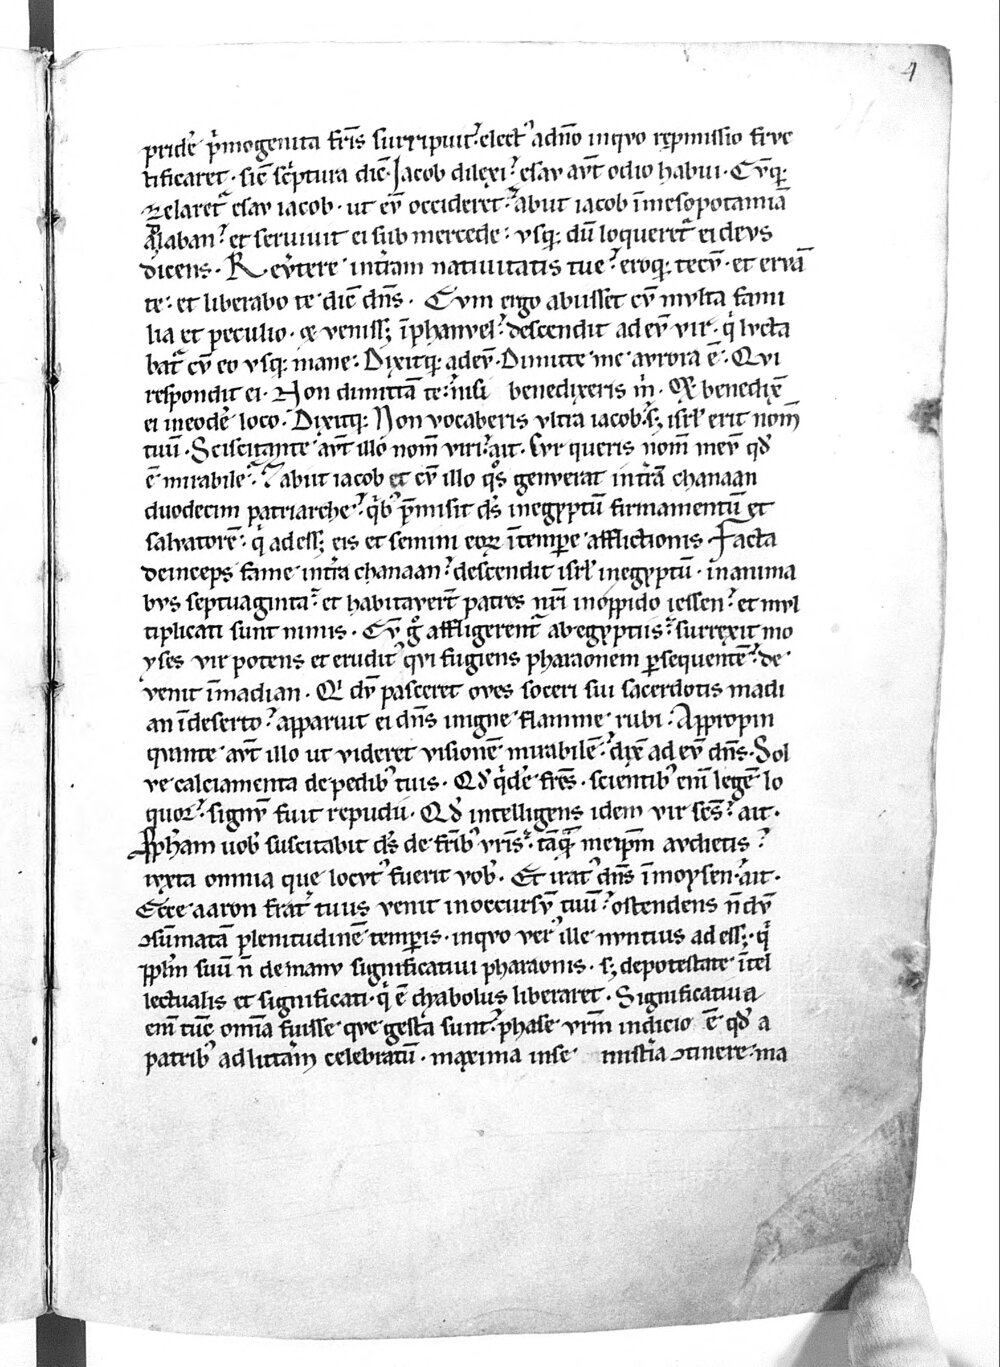 4
pride p̾mogenita fr̄is surripuit. elect᾽ adn̄o inquo rep̱missio fruc
tificaret. sic̄ sc̾ptura dic̄. Jacob dilexi. esau aut̄ odio habui. Cūq;
zelaret᷑ esau iacob. ut eū occideret. abiit iacob ī mesopotamiā
ad laban. et seruiuit ei sub mercede. usq; dū loqueret᷑ ei deus
dicens. Reu᷑tere int̄ram natiuitatis tue. eroq; tecū. et eruā
te. et liberabo te dic̄ dn̄s. Cum ergo abisset cū multa fami
lia et peculio. & uenissꝫ ī phanuel. descendit ad eū uir. q̾ lucta
bat᷑ cū eo usq; mane. Dixitq; ad eū. Dimitte me aurora ē. Qui
respondit ei. Non dimittā te nisi benedixeris m̾. & benedix̄
ei ineodē loco. Dixitq; Non uocaberis ultra iacob. sꝫ isrl̄ erit nom̄
tuū. Sciscitante aut̄ illo nom̄ uiri. ait. Cur queris nom̄ meū qd̄
ē mirabile. Abiit iacob et cū illo q̊s genuerat int̄ra chanaan
duodecim patriarche. q̾b᾽ p̄misit ds̄ inegyptū firmamentū et
saluatorē. q̾ adessꝫ eis et semini eoꝝ ī tempe afflictionis Facta
deinceps fame int̄ra chanaan. descendit isrl̄ inegyptū. inanima
bus septuaginta. et habitauer̄t patres nr̄i inoppido iessen. et mul
tiplicati sunt nimis. Cū g̊ affligerent᷑ ab egyptiis. surrexit mo
yses uir potens et erudit᾽ qui fugiens pharaonem ꝑsequentē. de
uenit ī madian. Q̾ dū pasceret oues soceri sui sacerdotis madi
an ī deserto. appariut ei dn̄s inigne flamme rubi. Appropin
quante aut̄ illo ut uideret uisionē mirabilē. dix̄ ad eū dn̄s. Sol
ue calciamenta de pedib᾽ tuis. Qd̄ q̾dē fr̄es. scientib᾽ eni̅ legē lo
quor. signū fuit repudii. Qd̄ intelligens idem uir ses̄. ait.
Pph̄am uob᾽ suscitabit ds̄ de fr̄ib᾽ ur̄is. tāq̄ meip̄m audietis
iuxta omnia que locut᾽ fuerit uob᾽. Et irat᾽ dn̄s ī moysen. ait.
Ecce aaron frat᷑ tuus uenit inoccursū tuū. ostendens n̄dū
ꝯsūmatā plenitudinē temp̱is. inquo uer᾽ ille nuntius adessꝫ. q̾
pp̱lm̄ suū n̄ de manu significatiui pharaonis. sꝫ depotestate ītel
lectualis et significati. q̾ ē dyabolus liberaret. Significatiua
eni̅ tūc om̄ia fuisse que gesta sunt. phase ur̄m indicio ē qd̄ a
patrib᾽ ad litt̄am celebratū. maxima inse mist̾ia ꝯtinere. ma